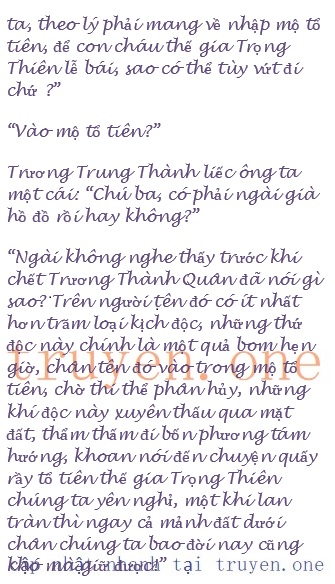 ta, theo lý phải mang về nhập mộ tổ
tiên, để con cháu thế gia Trọng
Thiên lễ bái, sao có thể tùy vứt đi
chứ ?”
“Vào mộ tổ tiên?”
Trương Trung Thành liếc ông ta
một cái: “Chú ba, có phải ngài già
hồ đồ rồi hay không?”
“Ngài không nghe thấy trước khi
chết Trương Thành Quân đã nói gì
sao? Trên người tên đó có ít nhất
hơn trăm loại kịch độc, những thứ
độc này chính là một quả bom hẹn
giờ, chân tên đó vào trong mộ tổ
tiên, chờ thi thể phân hủy, những
khí độc này xuyên thấu qua mặt
đất, thẩm thấm đi bốn phương tám
hướng, khoan nói đến chuyện quấy
rầy tổ tiên thế gia Trọng Thiên
chúng ta yên nghỉ, một khi lan
tràn thì ngay cả mảnh đất dưới
chân chúng ta bao đời nay cũng
truyen.one
cập nhật nhanh tại truyen.one